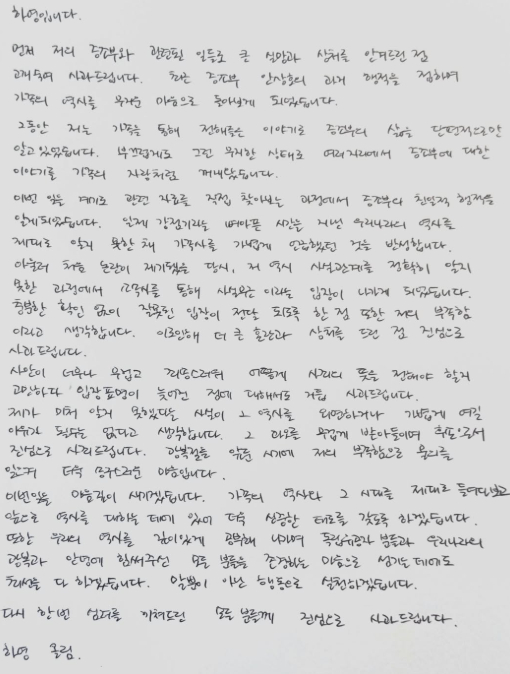 하영입니다.
먼저 저의 증조부와 관련된 일들로 큰 실망과 상처를 안겨드린 점
고개숙여 사과드립니다. 최근 증조부 안상호의 과거 행적을 접하며
가족의 역사를 무거운 마음으로 돌아보게 되었습니다.
그동안 저는 가족을 통해 전해들은 이야기로 증조부의 삶을 단편적으로만
알고있었습니다. 부끄럽게도 그런 무지한 상태로 여러자리에서 증조부에 대한
이야기를 가족의 자랑처럼 꺼내왔습니다.
이번 일을 계기로 관련 자료를 직접 찾아보는 과정에서 증조부의 친일적 행적을
알게되었습니다. 일제 강점기라는 뼈아픈 시간을 지닌 우리나라의 역사를
제대로 알지 못한 채 가족사를 가볍게 언급했던 것을 반성합니다.
아울러 처음 논란이 제기됐을 당시, 저 역시 사실관계를 정확히 알지
못한 과정에서 소속사를 통해 사실무근 이라는 입장이 나가게 되었습니다.
충분한 확인 없이 잘못된 입장이 전달 되도록 한 점 또한 저의 부족함
이라고 생각합니다. 이로인해 더 큰 혼란과 상처를 드린 점 진심으로
사과드립니다.
사안이 너무나 무겁고 죄송스러워 어떻게 사죄의 뜻을 전해야 할지
고민하다 입장표명이 늦어진 점에 대해서도 거듭 사과드립니다.
제가 미처 알지 못했다는 사실이 그 역사를 외면하거나 가볍게 여길
이유가 될수는 없다고 생각합니다. 그 과오를 무겁게 받아들이며 후손으로서
진심으로 사죄드립니다. 광복절을 앞둔 시기에 저의 부족함으로 물의를
일으켜 더욱 송구스러운 마음입니다.
이번일을 마음깊이 새기겠습니다. 가족의 역사와 그 시대를 제대로 들여다보고
앞으로 역사를 대하는 데에 있어 더욱 신중한 태도를 갖도록 하겠습니다.
또한 우리의 역사를 깊이있게 공부해 나가며 독립유공자 분들과 우리나라의
광복과 안녕에 힘써주신 모든 분들을 존경하는 마음으로 섬기는데에도
최선을 다 하겠습니다. 말뿐이 아닌 행동으로 실천하겠습니다.
다시 한번 심려를 끼쳐드린 모든 분들께 진심으로 사과드립니다.
하영 올림.